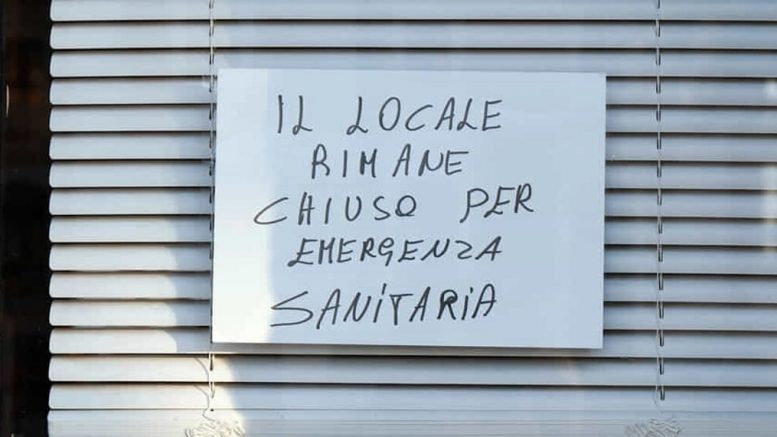 IL LOCALE
RIMANE
CHIUSO PER
EMERGENZA
SANITARIA